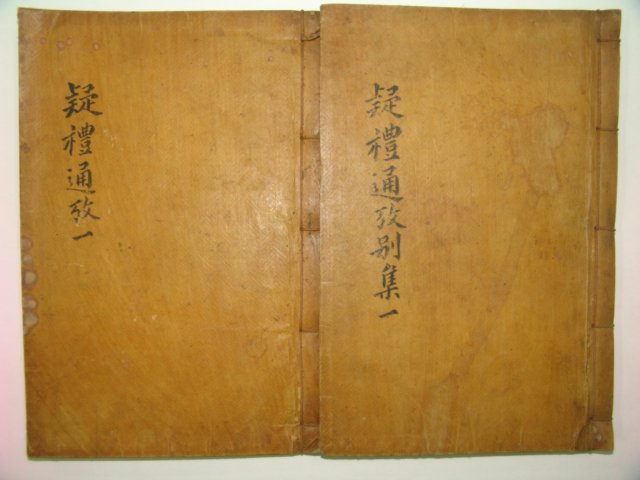 疑禮通攷別集一
疑禮通攷一